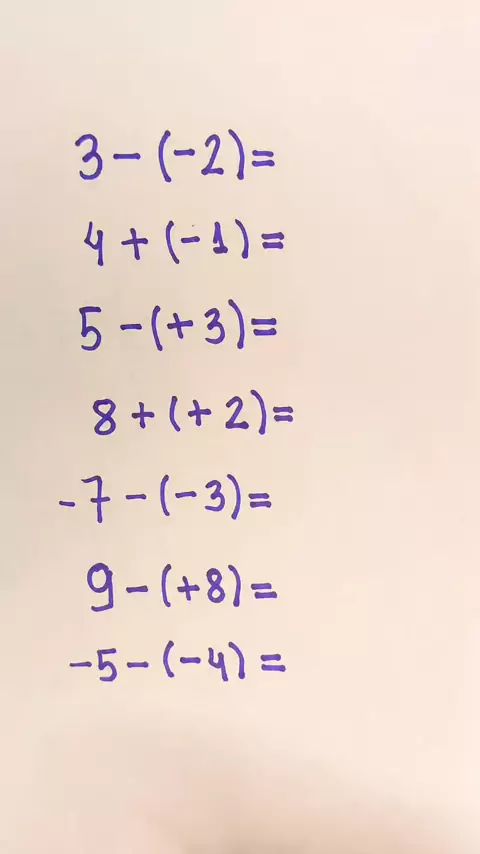 3 - (-2) =
4 + (-1) =
5 - (+3) =
8 + (+2) =
-7 - (-3) =
9 - (+8) =
-5 - (-4) =